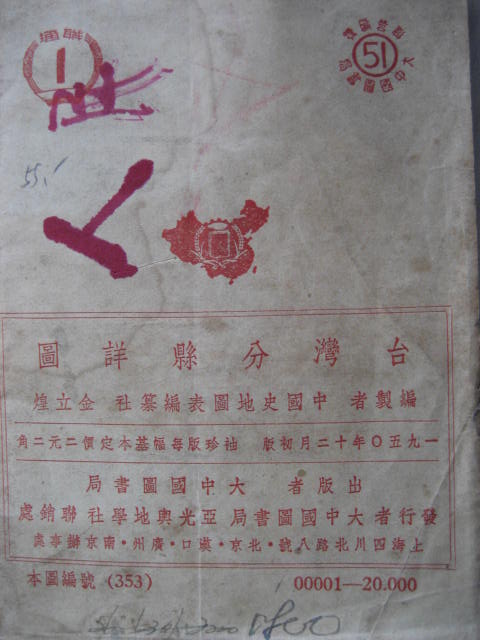 聯通
1
51
台灣分縣詳圖
編製者 中國史地圖表編纂社 金立煌
一九五〇年十二月初版 袖珍版每幅基本定價二元二角
出版者 大中國圖書局
發行者 大中國圖書局 亞光輿地學社 聯銷處
上海四川北路八號·北京·漢口·廣州·南京辦事處
本圖編號 (353) 00001—20.000
1800